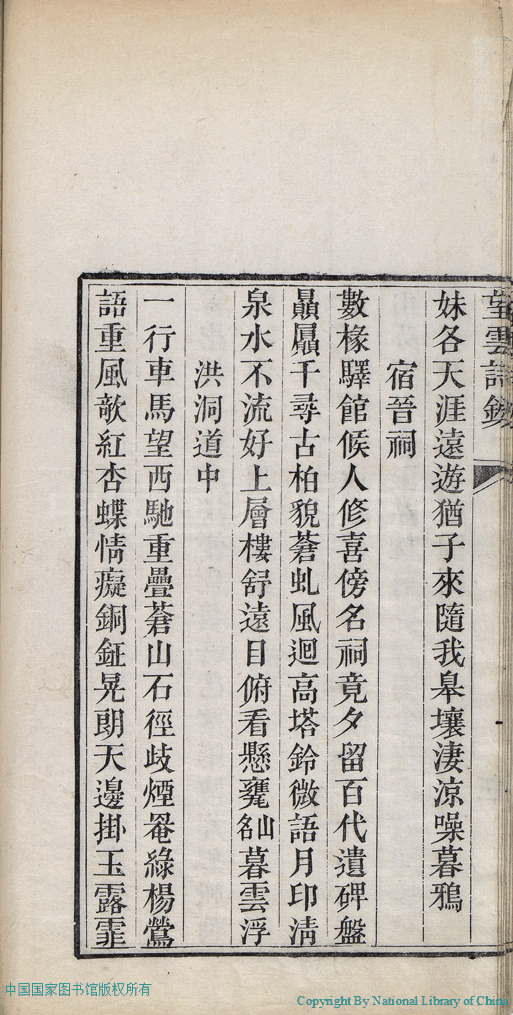 望雲詩鈔
妹各天涯遠遊猶子來隨我皋壤淒涼噪暮鴉
宿晉祠
數椽驛館候人修喜傍名祠竟夕留百代遺碑盤
贔屭千尋古柏貌蒼虬風迴高塔鈴微語月印淸
泉水不流好上層樓舒遠目俯看懸甕山名暮雲浮
洪洞道中
一行車馬望西馳重疊蒼山石徑歧煙罨綠楊鶯
語重風欹紅杏蝶情癡銅鉦晃朗天邊掛玉露霏
中国国家图书馆版权所有
Copyright By National Library of China